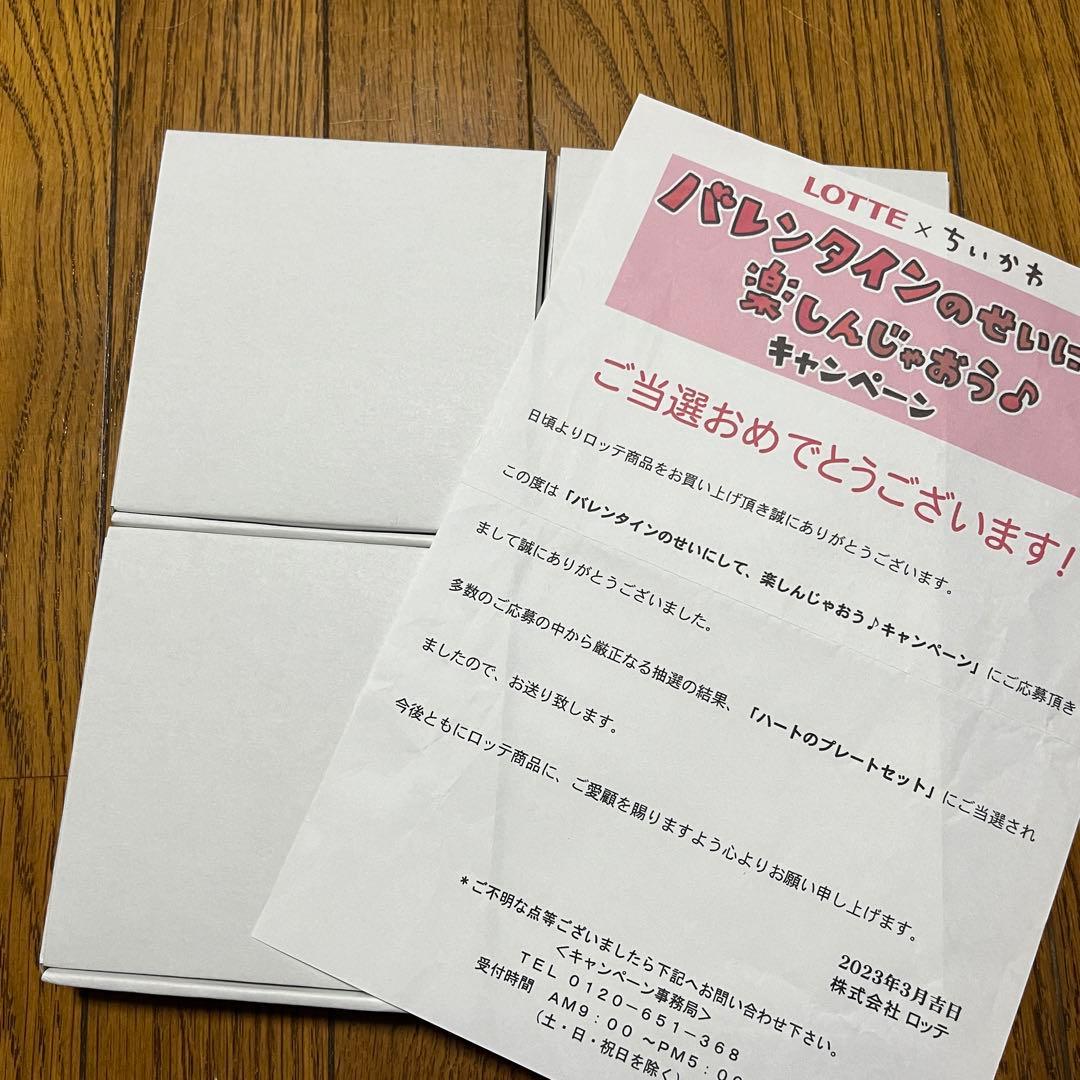 LOTTE × ちいかわ
バレンタインのせいに
楽しんじゃおう♪
キャンペーン
ご当選おめでとうございます!
日頃よりロッテ商品をお買い上げ頂き誠にありがとうございます。
この度は「バレンタインのせいにして、楽しんじゃおう♪キャンペーン」にご応募頂き
まして誠にありがとうございました。
多数のご応募の中から厳正なる抽選の結果、「ハートのプレートセット」にご当選され
ましたので、お送り致します。
今後ともにロッテ商品に、ご愛顧を賜りますよう心よりお願い申し上げます。
2023年3月吉日
株式会社 ロッテ
*ご不明な点等ございましたら下記へお問い合わせ下さい。
<キャンペーン事務局>
TEL 0120-651-368
受付時間 AM9:00~PM5:00
(土・日・祝日を除く)